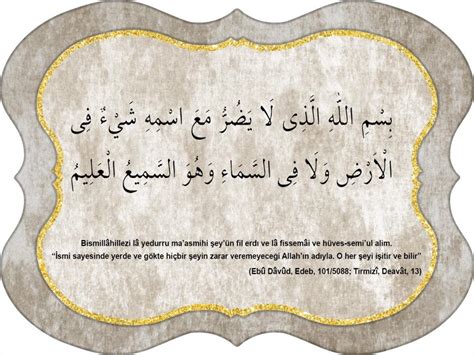 بِسْمِ اللّٰهِ الَّذِى لَا يَضُرُّ مَعَ اسْمِهِ شَىْءٌ فِى
الْاَرْضِ وَلَا فِى السَّمَاءِ وَهُوَ السَّمِيعُ الْعَلِيمُ
Bismillâhillezi lâ yedurru ma'asmihi şey'ün fil erdı ve lâ fissemâi ve hüves-semi'ul alim.
“İsmi sayesinde yerde ve gökte hiçbir şeyin zarar veremeyeceği Allah'ın adıyla. O her şeyi işitir ve bilir”
(Ebû Dâvûd, Edeb, 101/5088; Tirmizî, Deavât, 13)